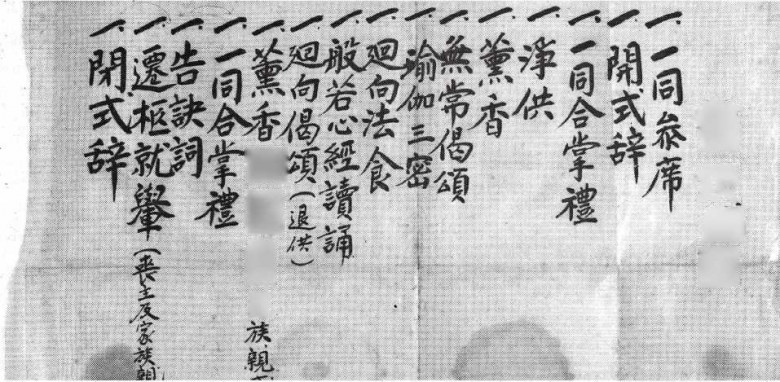 一、一同叅席
一、開式辞
一、一同合掌禮
一、淨供
一、薰香
一、無常偈頌
一、瑜伽三密
一、廻向法食
一、般若心經讀誦
一、廻向偈頌(退供)
一、薰香 族親
一、一同合掌禮
一、告訣詞
一、遷柩就轝(喪主及家族親
一、閉式辞